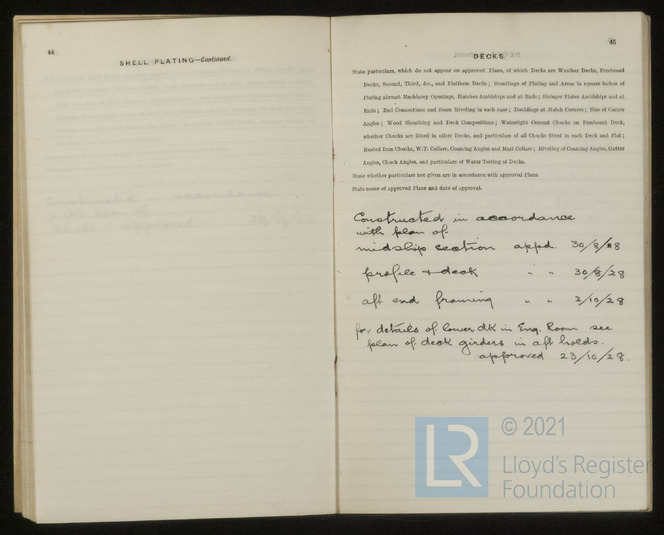 44
SHELL PLATING—Continued.
45
DECKS.
State particulars, which do not appear on approved Plans, of which Decks are Weather Decks, Freeboard
Decks, Second, Third, &c., and Platform Decks; Scantlings of Plating and Areas in square inches of
Plating abreast Machinery Openings, Hatches Amidships and at Ends; Stringer Plates Amidships and at
Ends; End Connections and Beam Riveting in each case; Doublings at Hatch Corners; Size of Corner
Angles; Wood Sheathing and Deck Compositions; Watertight Cement Chocks on Freeboard Deck,
whether Chocks are fitted in other Decks, and particulars of all Chocks fitted in each Deck and Flat;
Rusted Iron Chocks, W.T. Collars, Coaming Angles and Mast Collars; Riveting of Coaming Angles, Gutter
Angles, Chock Angles, and particulars of Water Testing of Decks.
State whether particulars not given are in accordance with approved Plans.
State name of approved Plans and date of approval.
Constructed in accordance
with plan of
midship section appd. 30/8/28
profile + deck " " 30/8/28
aft end framing " " 2/10/28
for details of lower dk in Eng. Room see
plan of deck girders in aft holds.
approved 23/10/28.
LR
© 2021
Lloyd's Register
Foundation